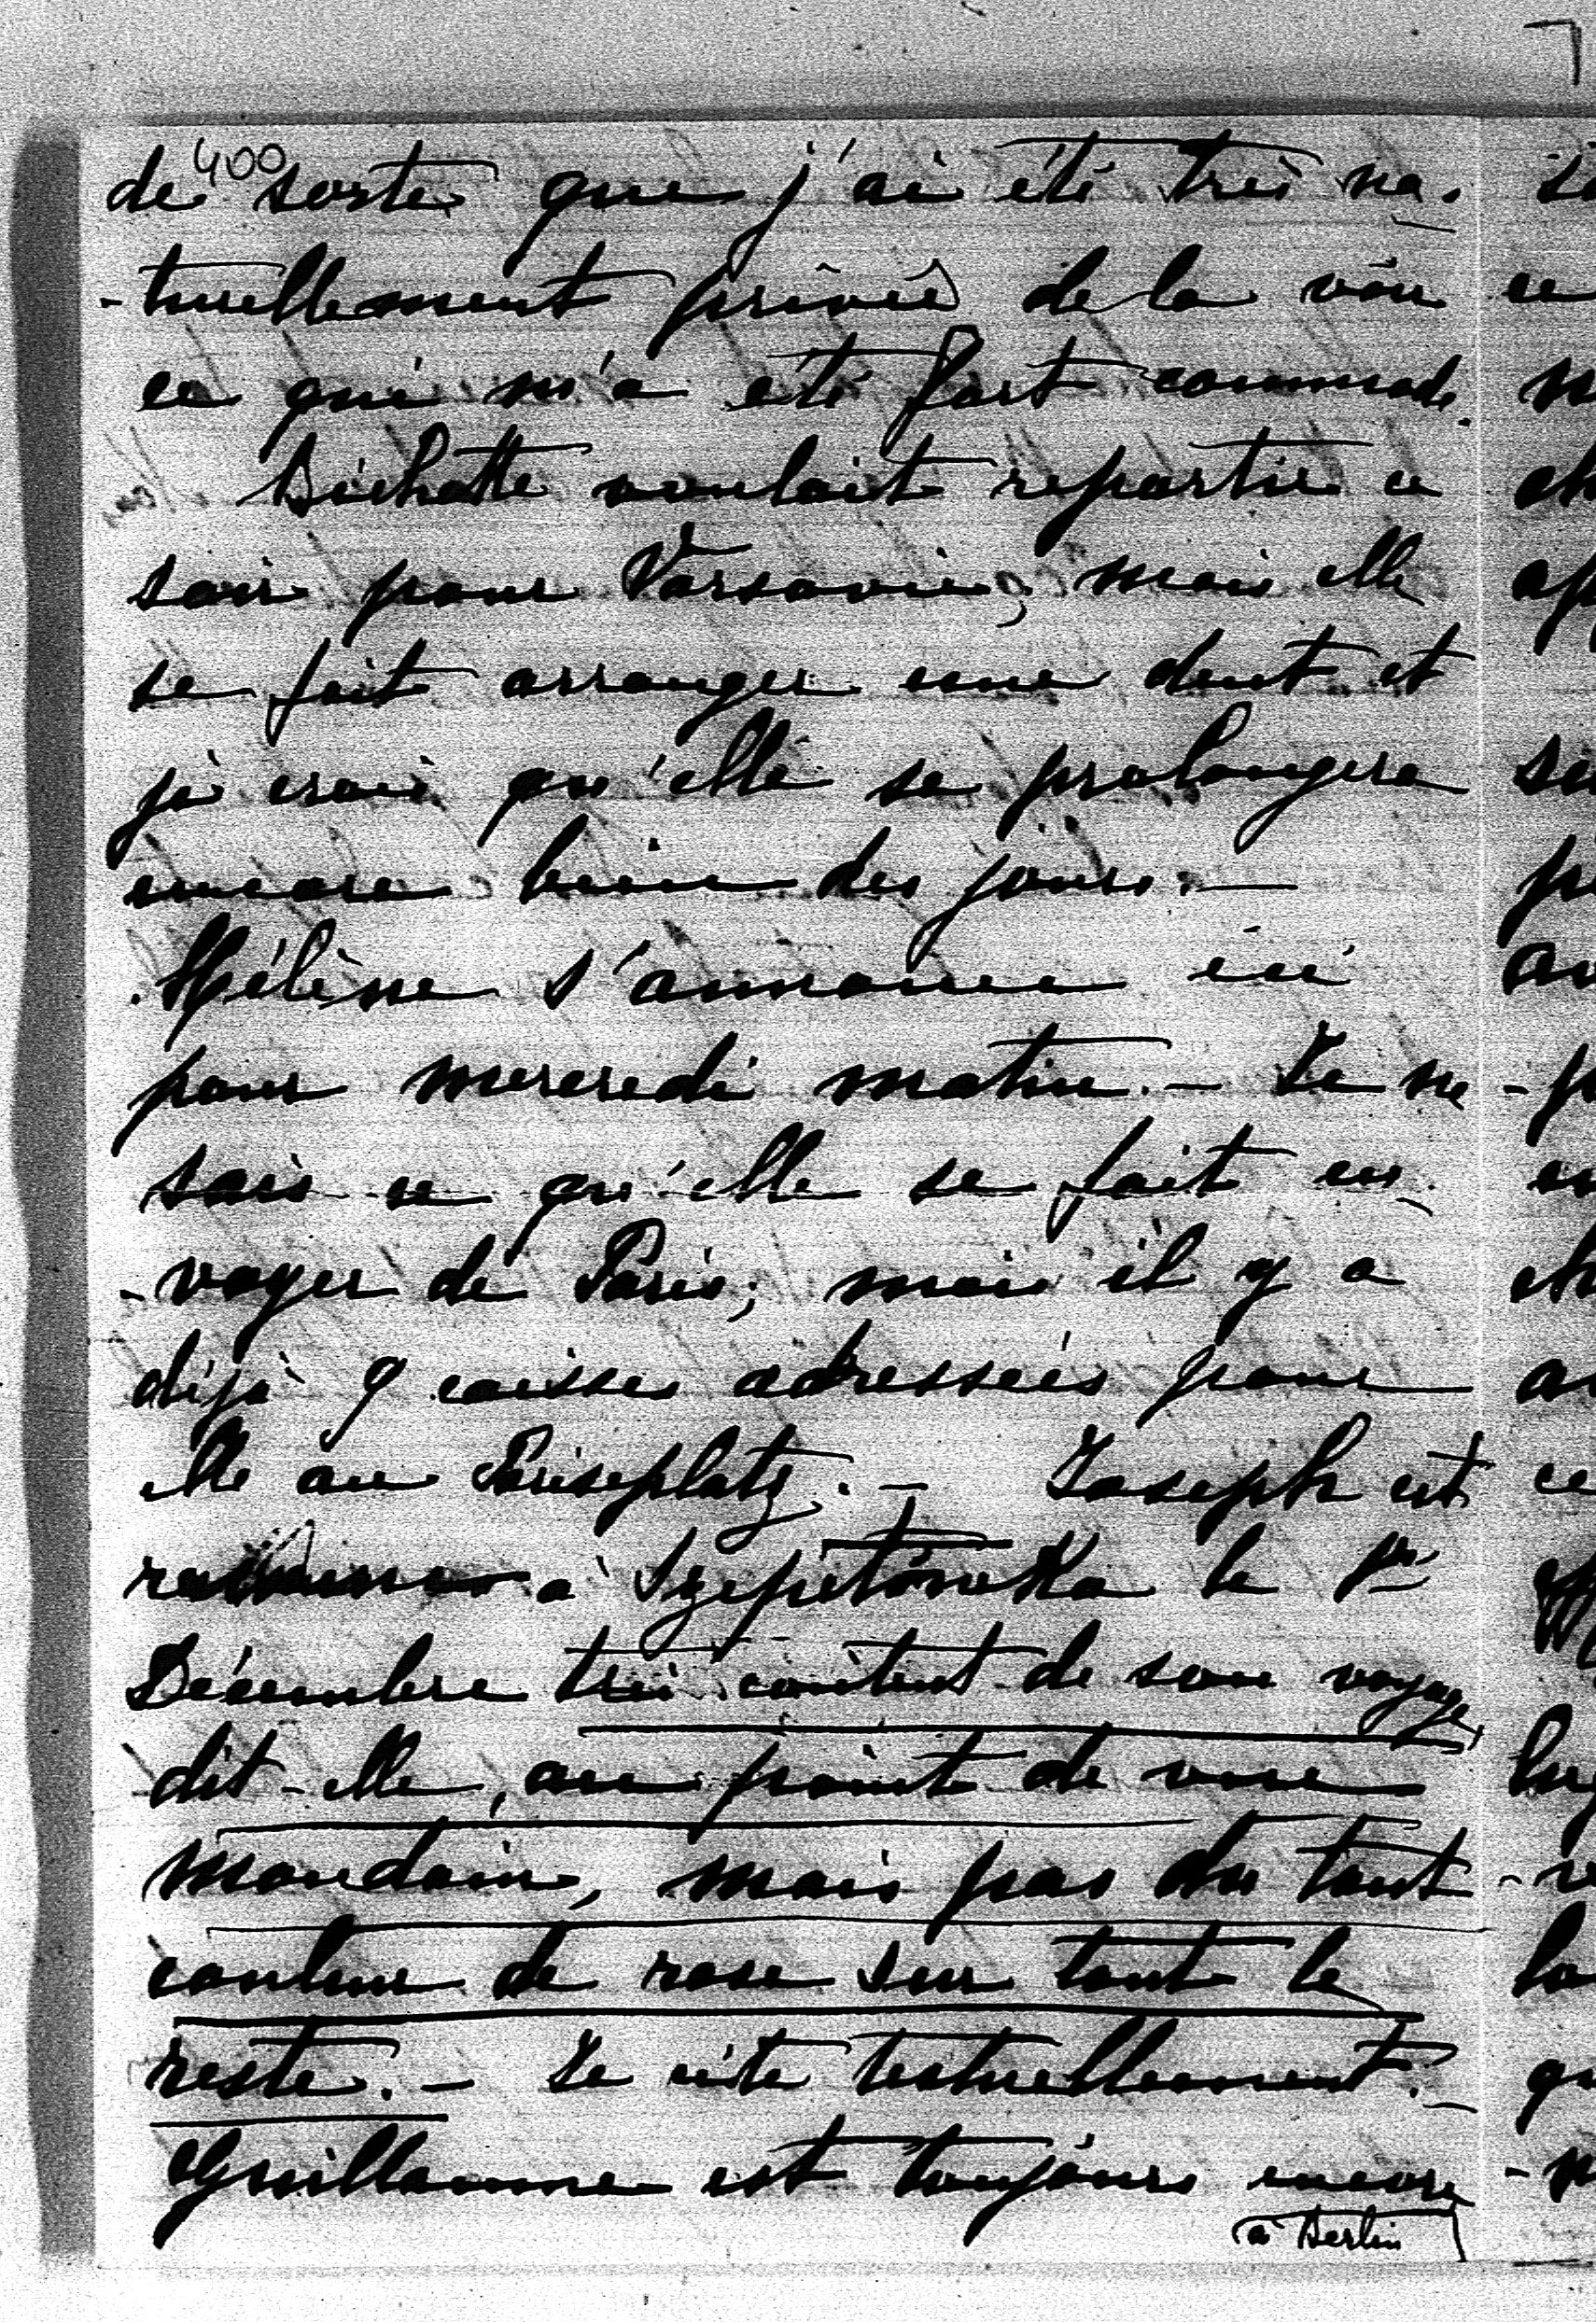 400
de sorte que j'ai été très na-
-turellement privée de la voir
ce qui m'a été fort commode.
Bichette voulait repartir ce
soir pour Varsovie, mais elle
se fait arranger une dent et
je crois qu'elle se prolongera
encore bien des jours. —
Hélène s'annonce ici
pour mercredi matin. — Je ne
sais ce qu'elle se fait en-
-voyer de Paris; mais il y a
déjà 9 caisses adressées pour
elle au Pariseplatz. — Joseph est
à Szepetówka le 1er
Décembre très content de son voyage,
dit-elle, au point de vue
mondain, mais pas du tout
couleur de rose sur tout le
reste. — Je cite textuellement. —
Guillaume est toujours encore
à Berlin